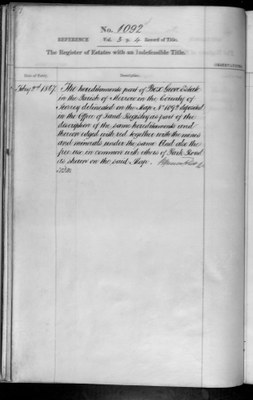 No. 1092
REFERENCE Vol. 3 p. 4 Record of Title.
The Register of Estates with an Indefeasible Title.
Date of Entry. Description. OBSERVATIONS
1867. The hereditaments part of Grove Estate
in the Parish of Merrow in the County of
Surrey delineated on the Map deposited
in the Office of Land Registry as part of the
description of the same hereditaments and
thereon edged with red together with the mines
and minerals under the same And also the
free use in common with others of Park Road
as shewn on the said Map.